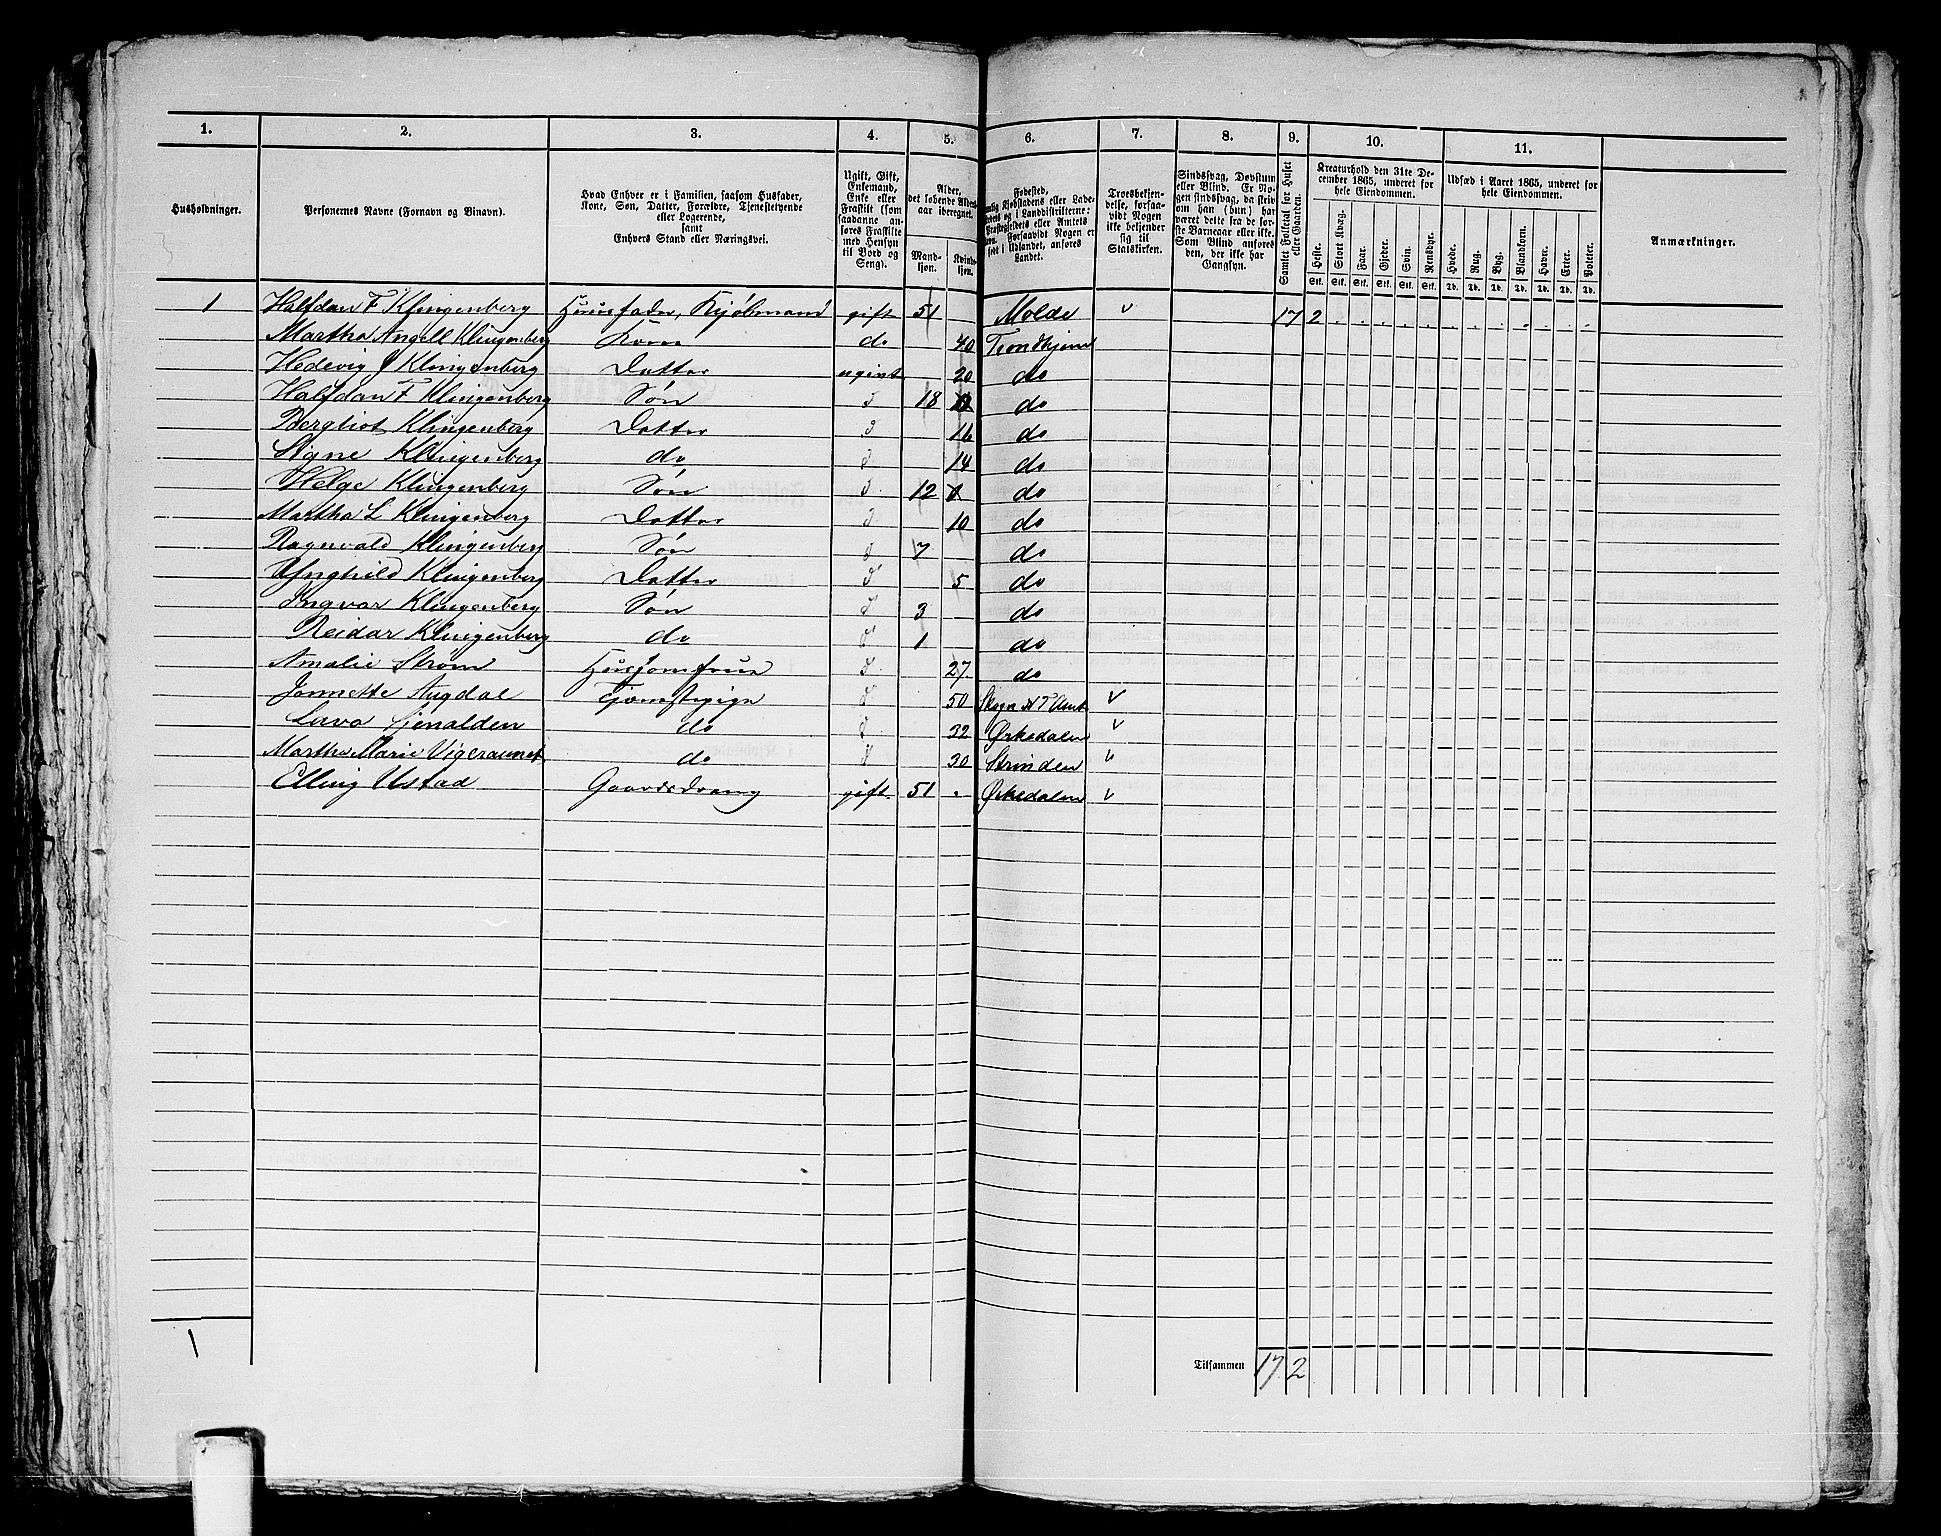 1. 2. 3. 4. 5. 6. 7. 8. 9. 10. 11.
Husholdninger.
Personernes Navne (Fornavn og Binavn).
Hvad Enhver er i Familien, saasom Husfader,
Kone, Søn, Datter, Forældre, Tjenestetyende
eller Logerende,
samt
Enhvers Stand eller Næringsvei.
Ugift, Gift,
Enkemand,
Enke eller
Fraskilt (som
saadanne anføres Fraskilte
med Hensyn
til Bord og
Seng).
Alder,
det løbende Alders-
aar iberegnet.
Mand-
kjøn.
Kvinde-
kjøn.
Fødested,
Landet.
Troesbekjen-
delse, forsaa-
vidt Nogen
ikke bekjender
sig til
Statskirken.
Sindssvag, Døvstum
eller Blind. Er No-
gen sindssvag, da skrives
om han (hun) har
været dette fra de før-
ste Barneaar eller ikke.
Som Blind anføres
den, der ikke har
Gangsyn.
Samlet Folketal for Huset
eller Gaarden.
Kreaturhold den 31te De-
cember 1865, underet for
hele Eiendommen.
Heste. Stort Kvæg. Faar. Gjeder. Svin. Rensdyr.
Stk. Stk. Stk. Stk. Stk. Stk.
Udsæd i Aaret 1865, underet for
hele Eiendommen.
Hvede. Rug. Byg. Blandkorn. Havre. Erter. Poteter.
Td. Td. Td. Td. Td. Td. Td.
Anmærkninger.
1 Halfdan F Klingenberg Huusfader, Kjøbmand gift 51 Molde v 17 2
Martha Angell Klingenberg Kone do 40 Trondhjem
Hedevig J Klingenberg Datter ugivt 20 do
Halfdan F Klingenberg Søn 18 do
Bergliot Klingenberg Datter 16 do
Signe Klingenberg do 14 do
Helge Klingenberg Søn 12 do
Martha L Klingenberg Datter 10 do
Ragnvald Klingenberg Søn 7 do
Ynghild Klingenberg Datter 5 do
Ingvar Klingenberg Søn 3 do
Reidar Klingenberg do 1 do
Amalie Strøm Husjomfrue 27 do
Jonnette Augdal Tjenestepige 50 N T Amt v
Lava do 32 Ørkedalen v
Martha Marie do 30 Strinden v
Elling Ustad Gaardsdreng gift 51 Ørkedalen v
1
Tilsammen 17 2